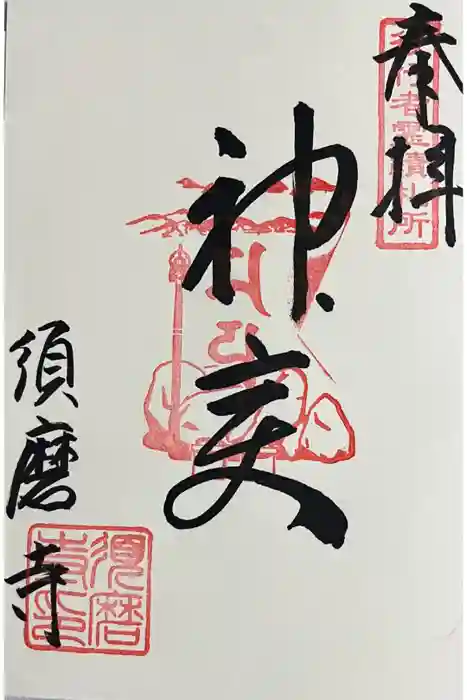 奉拝
役行者霊蹟札所
神変
須磨寺
須磨寺印